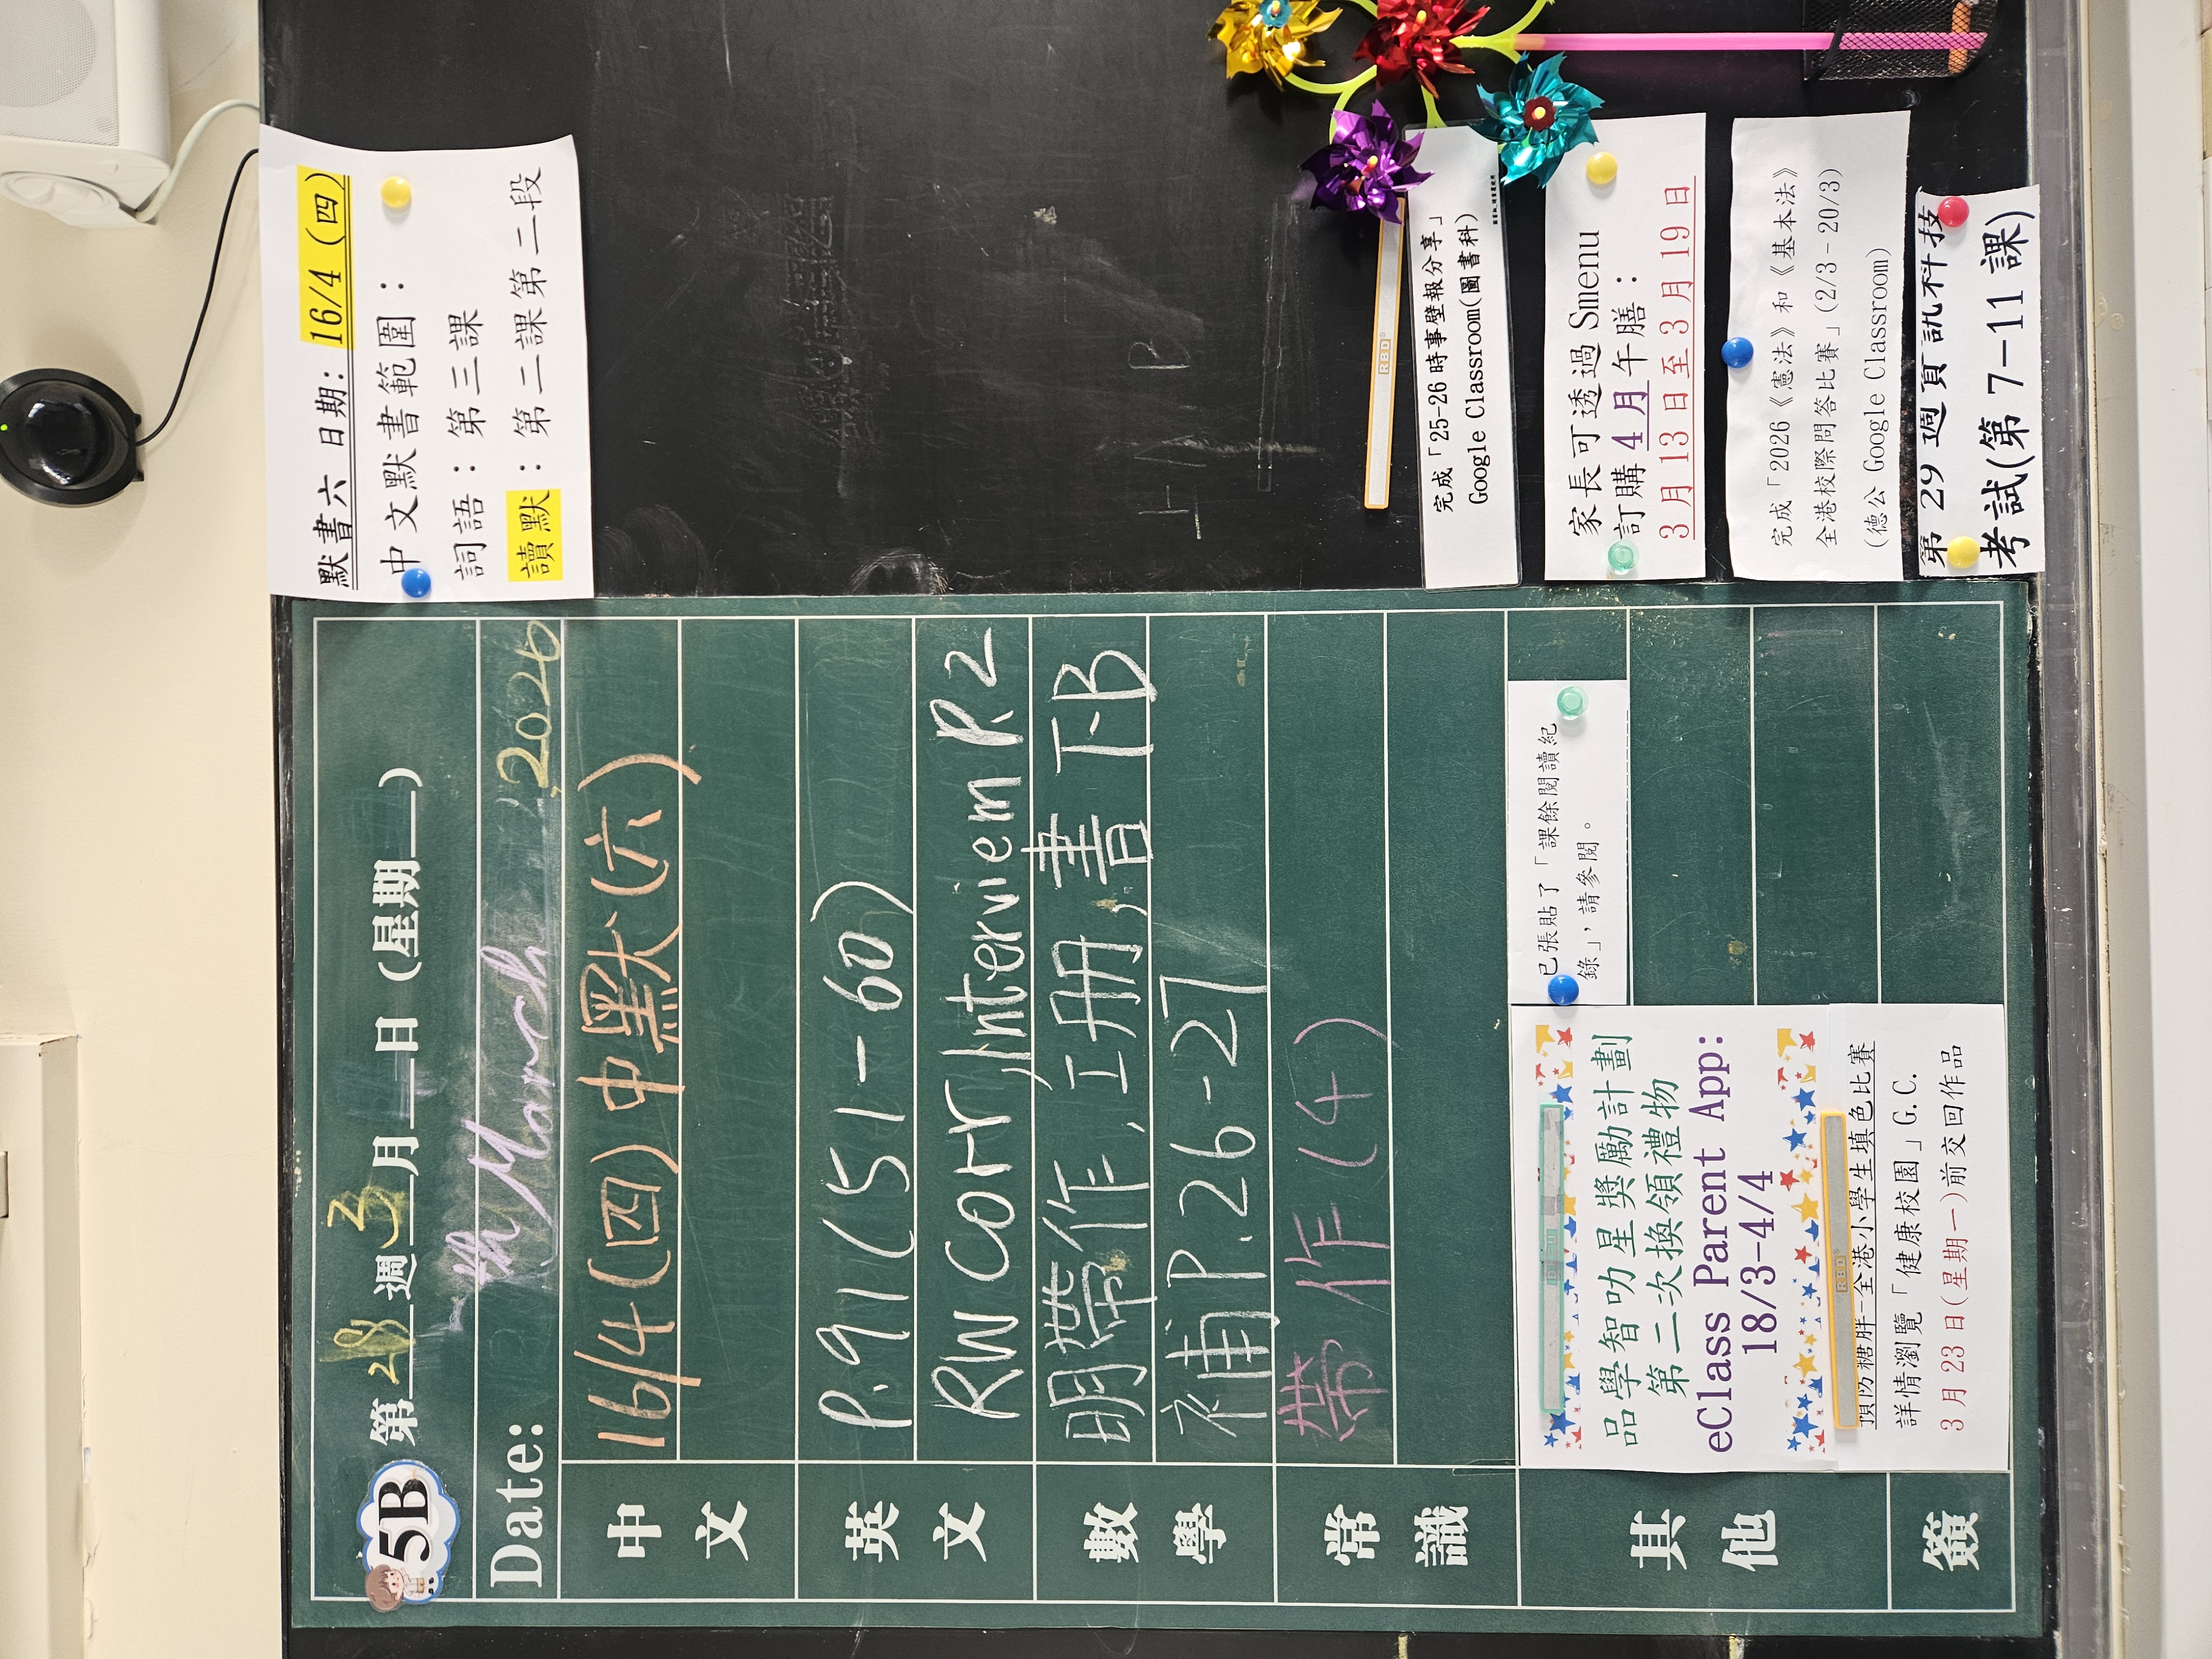 5B 第28週 3月 日 (星期 )
Date: th March, 2026
中文
16/4(四)中默(六)
英文
P.91(51-60)
RW Corr, Interview P.2
數學
明帶作,工册,書T-B
補P.26-27
常識
帶作(4)
其他
已張貼了「課餘閱讀紀
錄」,請參閱。
品學智叻星獎勵計劃
第二次換領禮物
eClass Parent App:
18/3-4/4
預防糖胖-全港小學生填色比賽
詳情瀏覽「健康校園」G.C.
3月23日(星期一)前交回作品
簽
默書六 日期: 16/4 (四)
中文默書範圍:
詞語:第三課
讀默:第二課第二段
RBD
完成「25-26 時事壁報分享」
Google Classroom(圖書科)
家長可透過 Smenu
訂購 4 月午膳:
3 月 13 日至 3 月 19 日
完成「2026《憲法》和《基本法》
全港校際問答比賽」(2/3-20/3)
(德公 Google Classroom)
第 29 週資訊科技
考試(第 7-11 課)